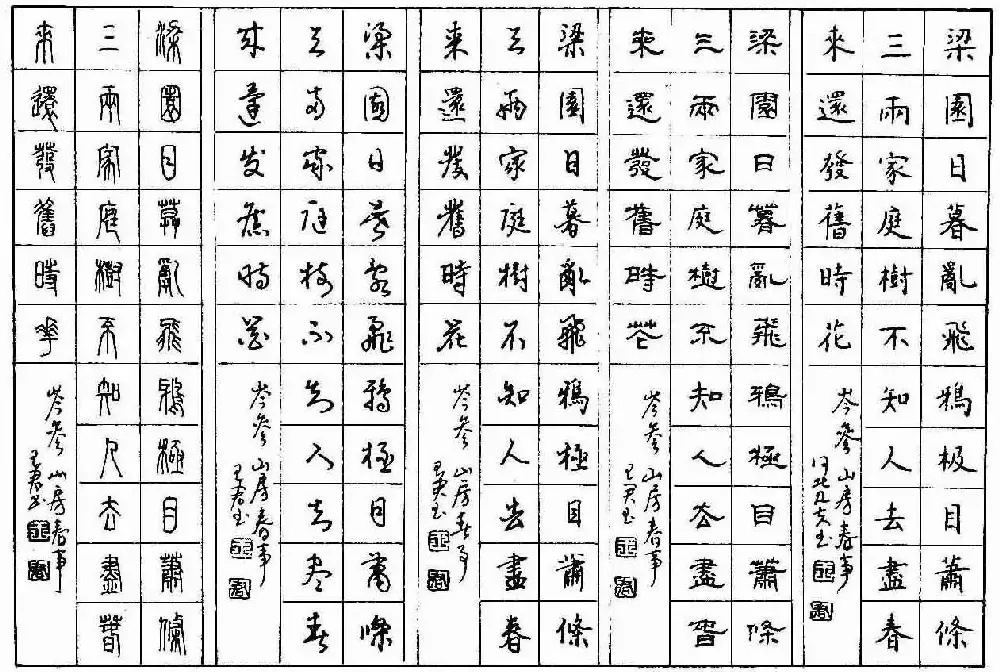 梁園日暮亂飛鴉极目蕭條
三兩家庭樹不知人去盡春
來還發舊時花
岑參 山房春事
梁園日暮亂飛鴉極目蕭條
三兩家庭樹不知人去盡春
來還發舊時花
岑參 山房春事
梁園日暮亂飛鴉極目蕭條
三兩家庭樹不知人去盡春
來還發舊時花
岑參 山房春事
梁園日暮亂飛鴉極目蕭條
三兩家庭樹不知人去盡春
來還發舊時花
岑參 山房春事
梁園日暮亂飛鴉極目蕭條
三兩家庭樹不知人去盡春
來還發舊時花
岑參 山房春事